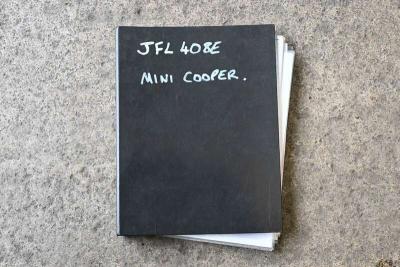 JFL 408E
MINI COOPER.